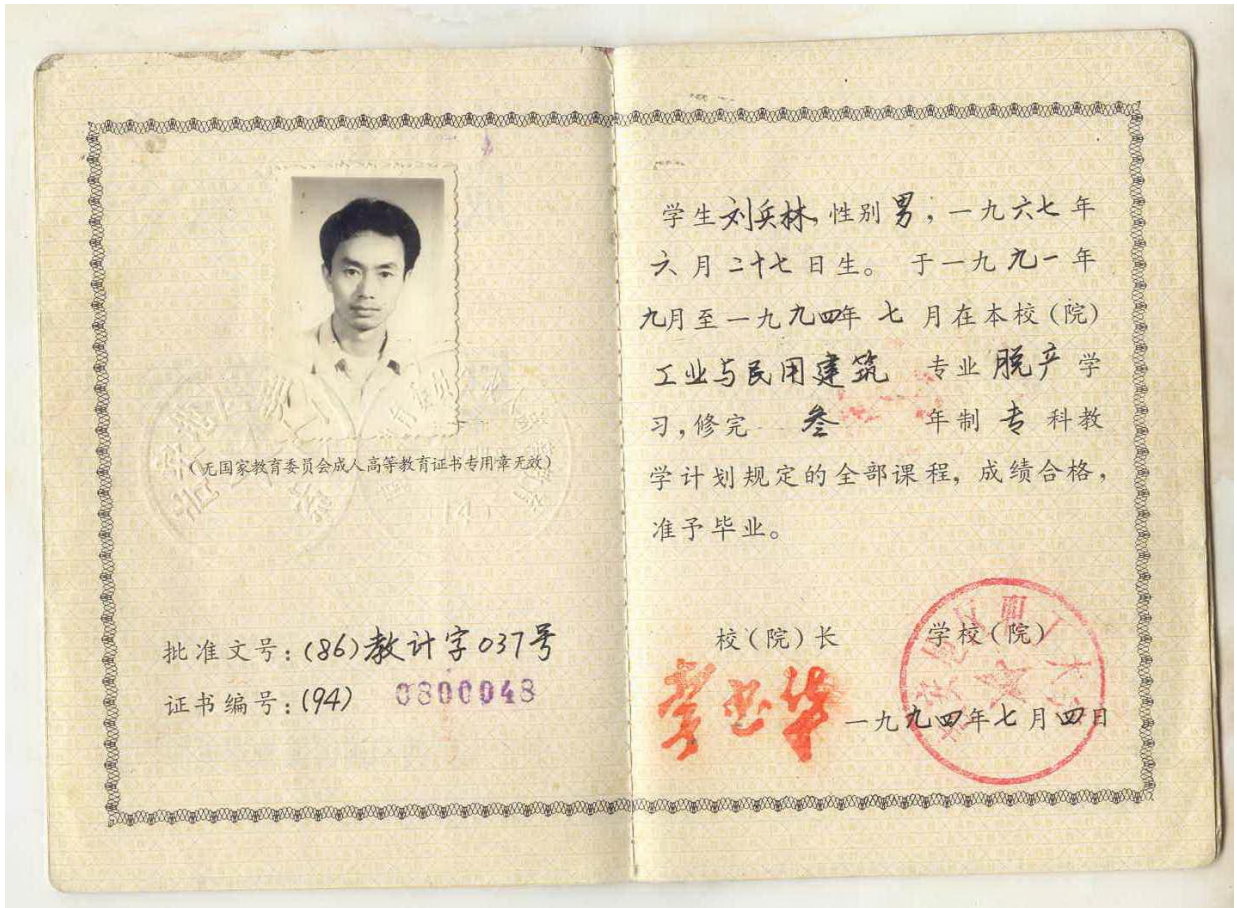 (无国家教育委员会成人高等教育证书专用章无效)
批准文号:(86)教计字037号
证书编号:(94) 0800048
学生刘兵林,性别男,一九六七年
六月二十七日生。于一九九一年
九月至一九九四年七月在本校(院)
工业与民用建筑 专业脱产学
习,修完 叁 年制专科教
学计划规定的全部课程,成绩合格,
准予毕业。
校(院)长 学校(院)
一九九四年七月四日